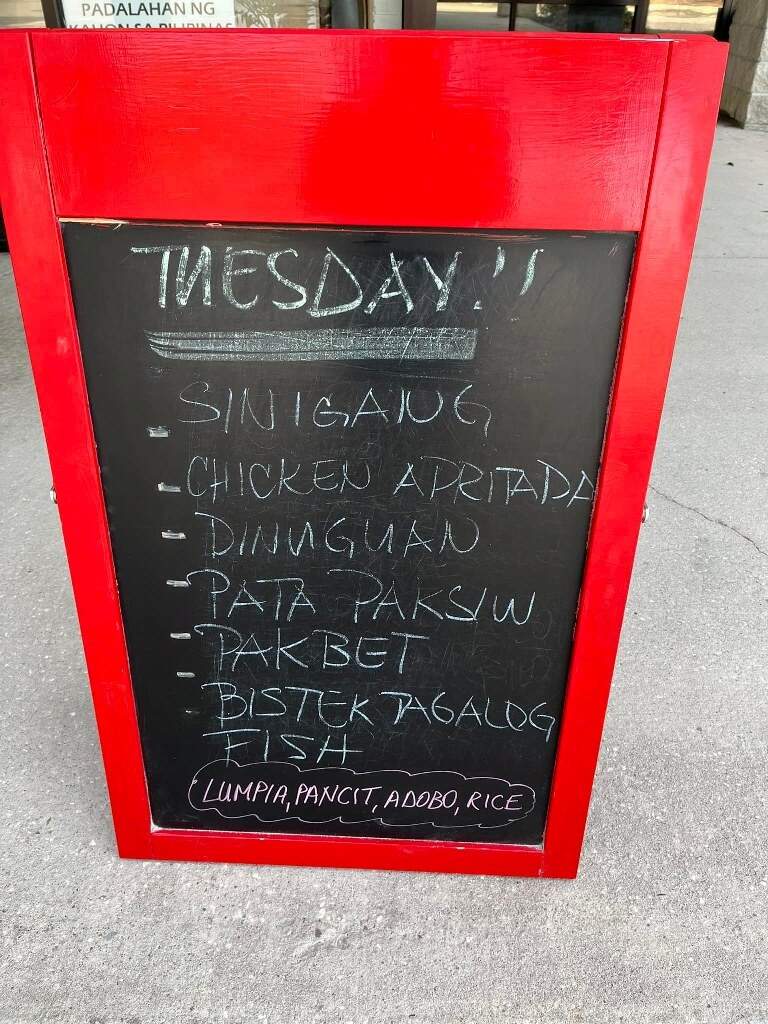 PADALAHAN NG
KAHON SA PILIPINAS
TUESDAY!!
- SINIGANG
- CHICKEN APRITADA
- DINUGUAN
- PATA PAKSIW
- PAKBET
- BISTEK TAGALOG
FISH
LUMPIA, PANCIT, ADOBO, RICE